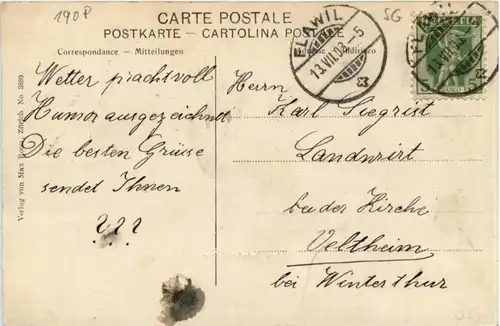 190 P
SG
CARTE POSTALE
POSTKARTE - CARTOLINA POSTALE
Correspondance — Mitteilungen
FLAWIL
13.VII.08.-5
HELVETIA
5
Wetter prachtvoll
Humor ausgezeichnet
Die besten Grüsse
sendet Ihnen
???
Herrn
Karl Siegrist
Landwirt
bei der Kirche
Veltheim
bei Winterthur
Verlag von Max Zürich No. 3899